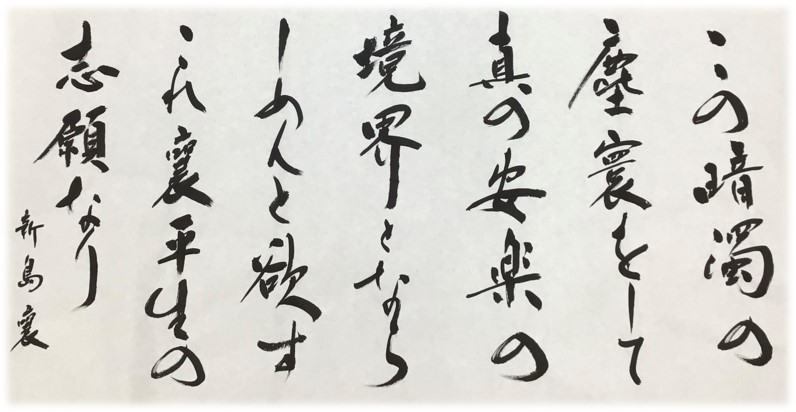 この暗濁の
塵寰をして
真の安楽の
境界となら
しめんと欲す
これ襄平生の
志願なり
新島襄